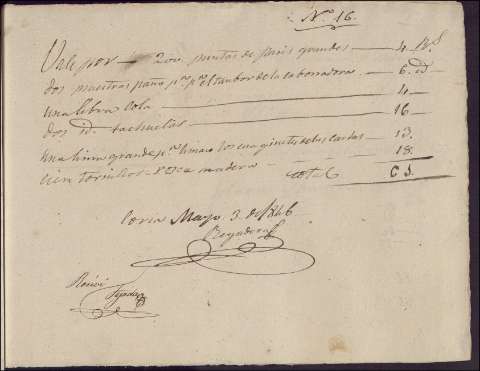 Nº 16.
Vale por 200 puntas de París grandes 4 Rs
dos nuestras para pª pª el tambor de la emborradora 6 id
una libra cola 4
dos id. tachuelas 16
una lima grande pª limar los de las cardas 13.
cien tornillos Rosca madera 18.
total 61.
Coria Mayo 3. de 1846
Recivi
Tejeda